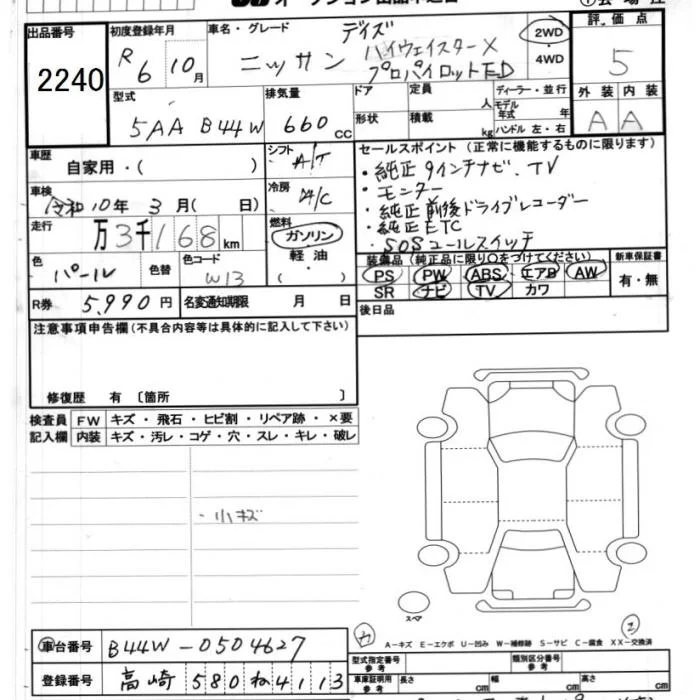 オークション出品申込書
出品番号
2240
初度登録年月
R 6 10月
車名・グレード
デイズ
ニッサン ハイウェイスターX
プロパイロットED
2WD
・
4WD
評価点
5
外装 内装
A A
型式
5AA B44W
排気量
660 cc
ドア
形状
定員
人
積載
kg
ディーラー・並行
モデル年式 年
ハンドル 左・右
車歴
自家用・( )
シフト
A/T
車検
令和10年 3月( 日)
冷房
A/C
走行
万3千168km
燃料
ガソリン
・
軽油
・
色
パール
色替
色コード
W13
R券 5,990円
名変通知期限 月 日
セールスポイント(正常に機能するものに限ります)
・純正9インチナビ、TV
・モニター
・純正前後ドライブレコーダー
・純正ETC
・SOSコールスイッチ
装備品(純正品に限り○をつけてください)
PS PW ABS エアB AW
SR ナビ TV カワ
新車保証書
有・無
後日品
注意事項申告欄(不具合内容等は具体的に記入して下さい)
修復歴 有 〔箇所 〕
検査員記入欄
FW キズ・飛石・ヒビ割・リペア跡・×要
内装 キズ・汚レ・コゲ・穴・スレ・キレ・破レ
・小キズ
スペア
A-キズ E-エクボ U-凹み W-補修跡 S-サビ C-腐食 XX-交換済
車台番号 B44W-0504627
登録番号 高崎 580 ね 4113
型式指定番号
参考
類別区分番号
参考
車庫証明用
参考
長さ cm
幅 cm
高さ cm